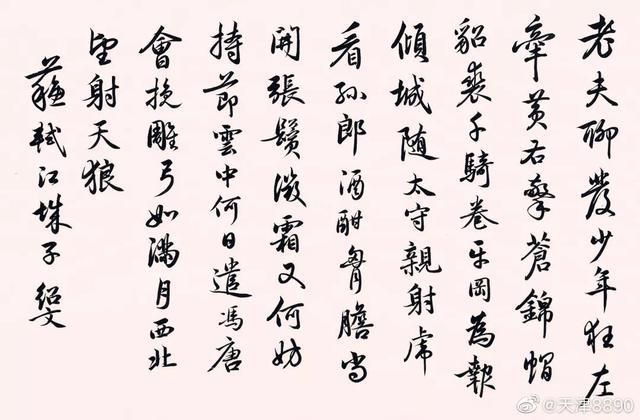 老夫聊發少年狂左
牽黃右擎蒼錦帽
貂裘千騎卷平岡為報
傾城随太守親射虎
看孙郎酒酣胷膽尚
開張鬢微霜又何妨
持節雲中何日遣馮唐
會挽雕弓如滿月西北
望射天狼
蘇軾江城子
@天津8890